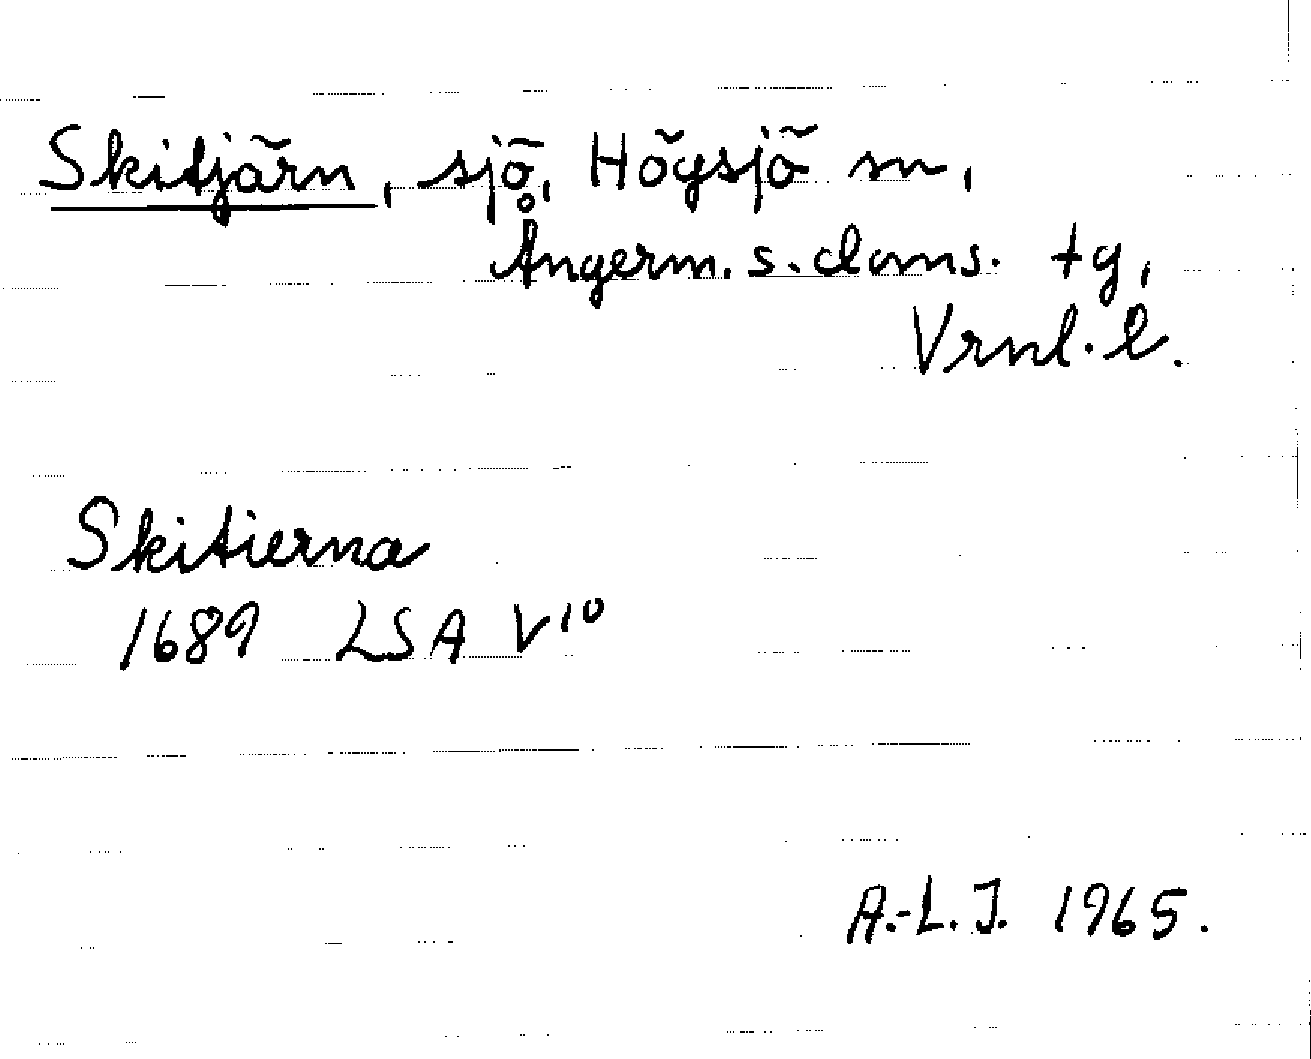 Skitjärn, sjö, Högsjö sn,
Ångerm. s. doms. tg,
Vrnl. l.
Skitierna
1689 LSA V 10
A.-L. J. 1965.